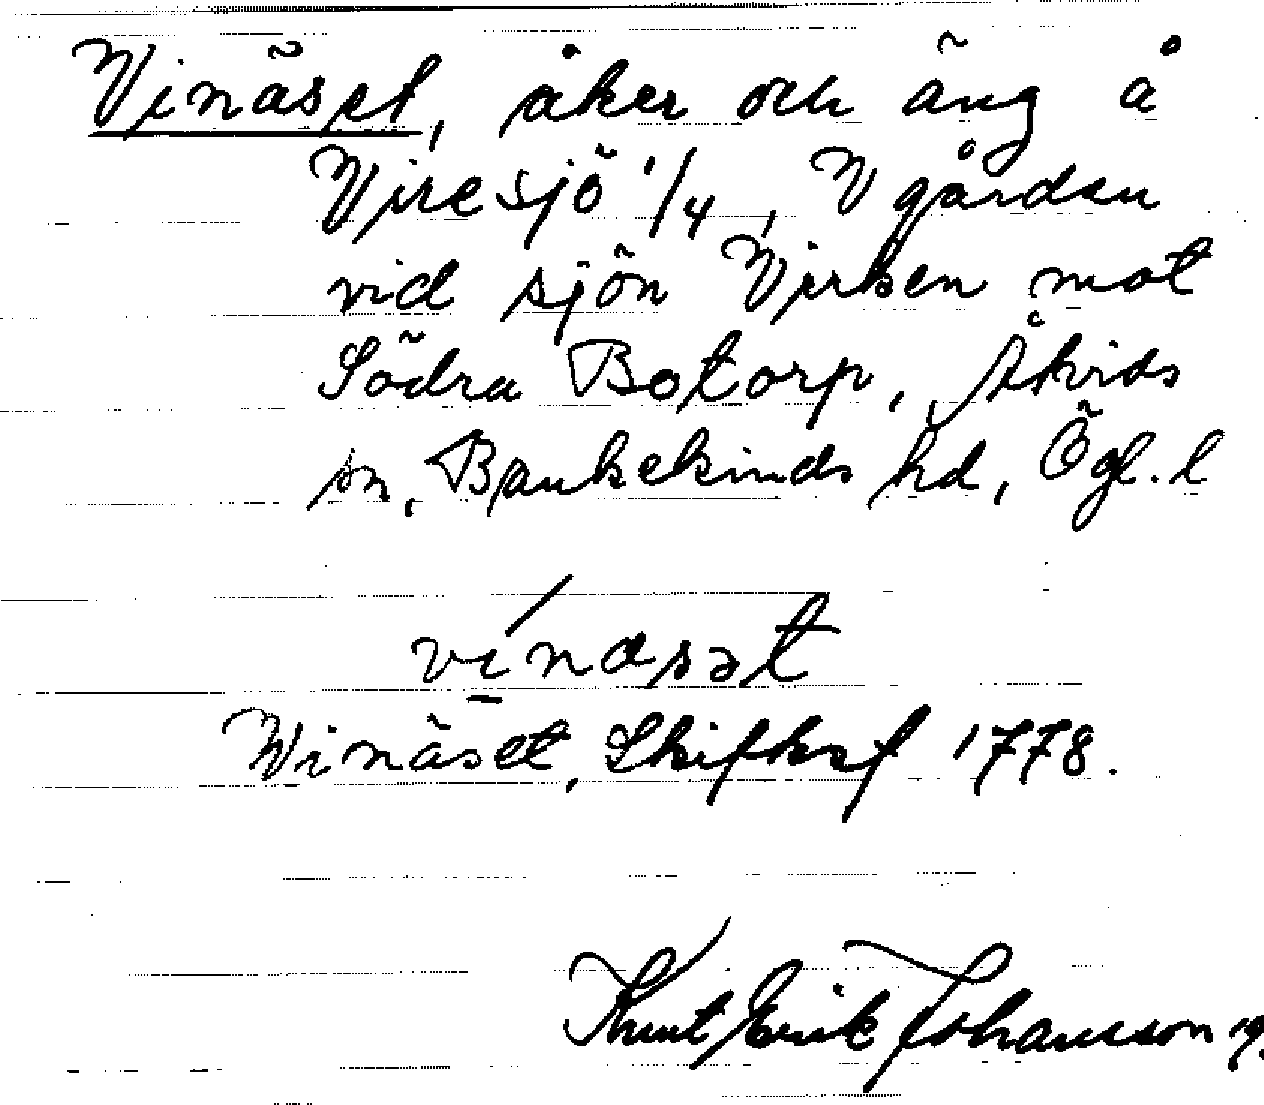 Vinäset, åker och äng å
Viresjö 1/4, V gården
vid sjön Virken mot
Södra Botorp, Åkvids
sn, Bankekinds hd, Ögl. l
vínasət
Winäset, Skifksf 1778.
Knut Erik Johansson 19